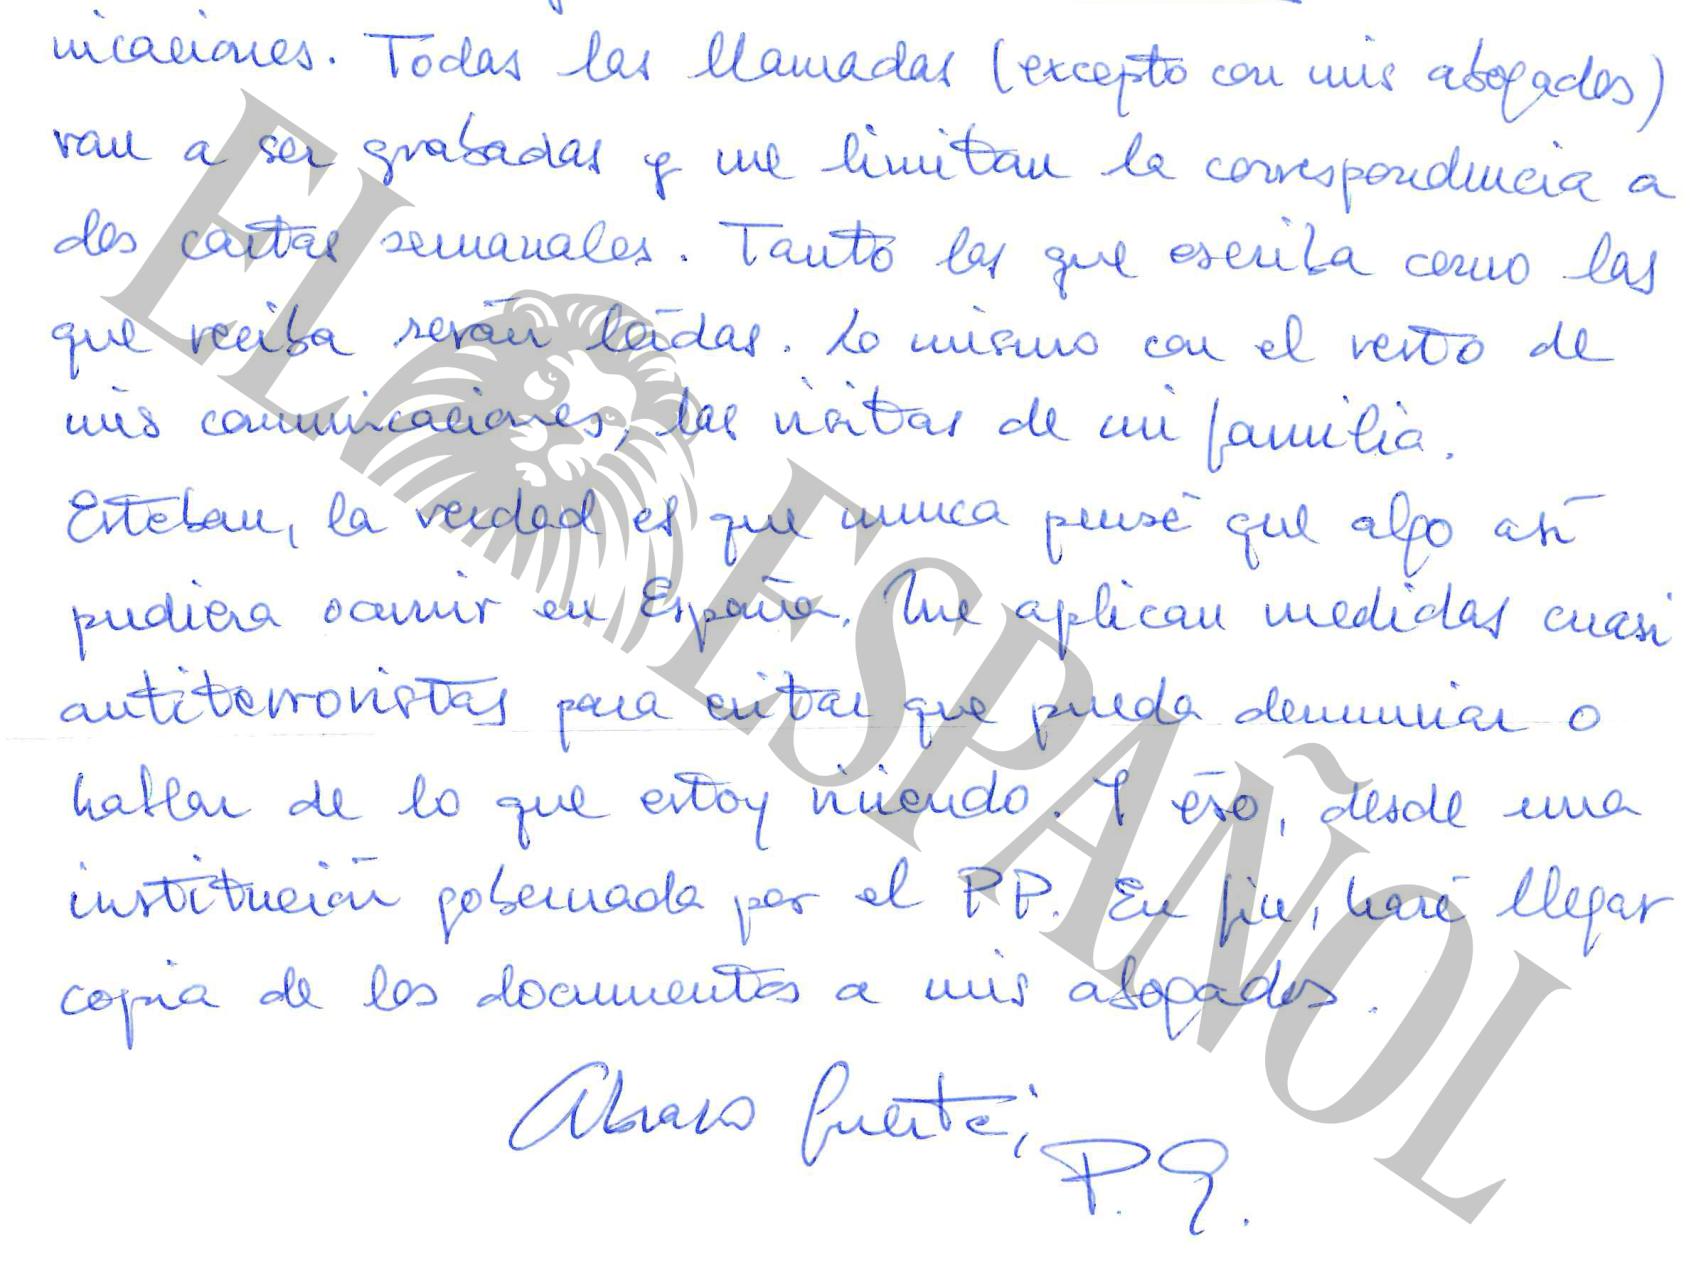 nicaciones. Todas las llamadas (excepto con mis abogados)
van a ser grabadas y me limitan la correspondencia a
dos cartas semanales. Tanto las que escriba como las
que reciba serán leídas. Lo mismo con el resto de
mis comunicaciones, las visitas de mi familia.
Esteban, la verdad es que nunca pensé que algo así
pudiera ocurrir en España. Me aplican medidas cuasi
antiterroristas para evitar que pueda denunciar o
hablar de lo que estoy viviendo. Y eso, desde una
institución gobernada por el PP. En fin, haré llegar
copia de los documentos a mis abogados.
Abrazo fuerte,
P. G.
EL ESPAÑOL